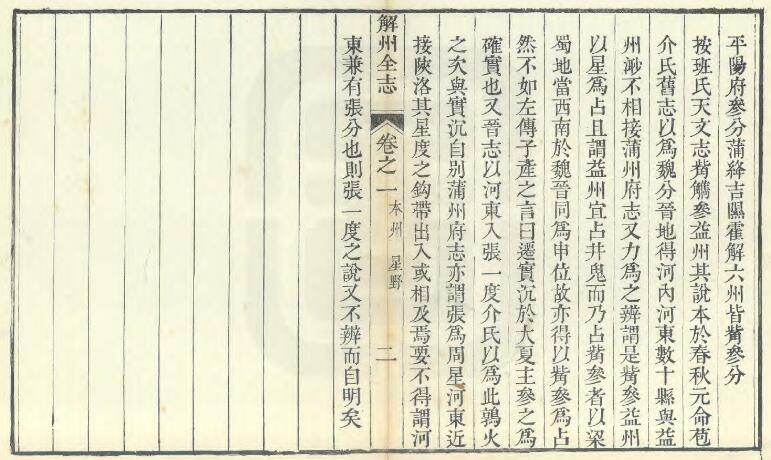 平陽府參分蒲絳吉隰霍解六州皆觜參分
按班氏天文志觜觿參益州其說本於春秋元命苞
介氏舊志以爲魏分晉地得河內河東數十縣與益
州渺不相接蒲州府志又力爲之辨謂是觜參益州
以星爲占且謂益州宜占井鬼而乃占觜參者以梁
蜀地當西南於魏晉同爲申位故亦得以觜參爲占
然不如左傳子產之言曰遷實沉於大夏主參之爲
確實也又晉志以河東入張一度介氏以爲此鶉火
之次與實沉自别蒲州府志亦謂張爲周星河東近
接陜洛其星度之鈎帶出入或相及焉要不得謂河
解州全志 卷之一 本州 星野 二
東兼有張分也則張一度之說又不辨而自明矣